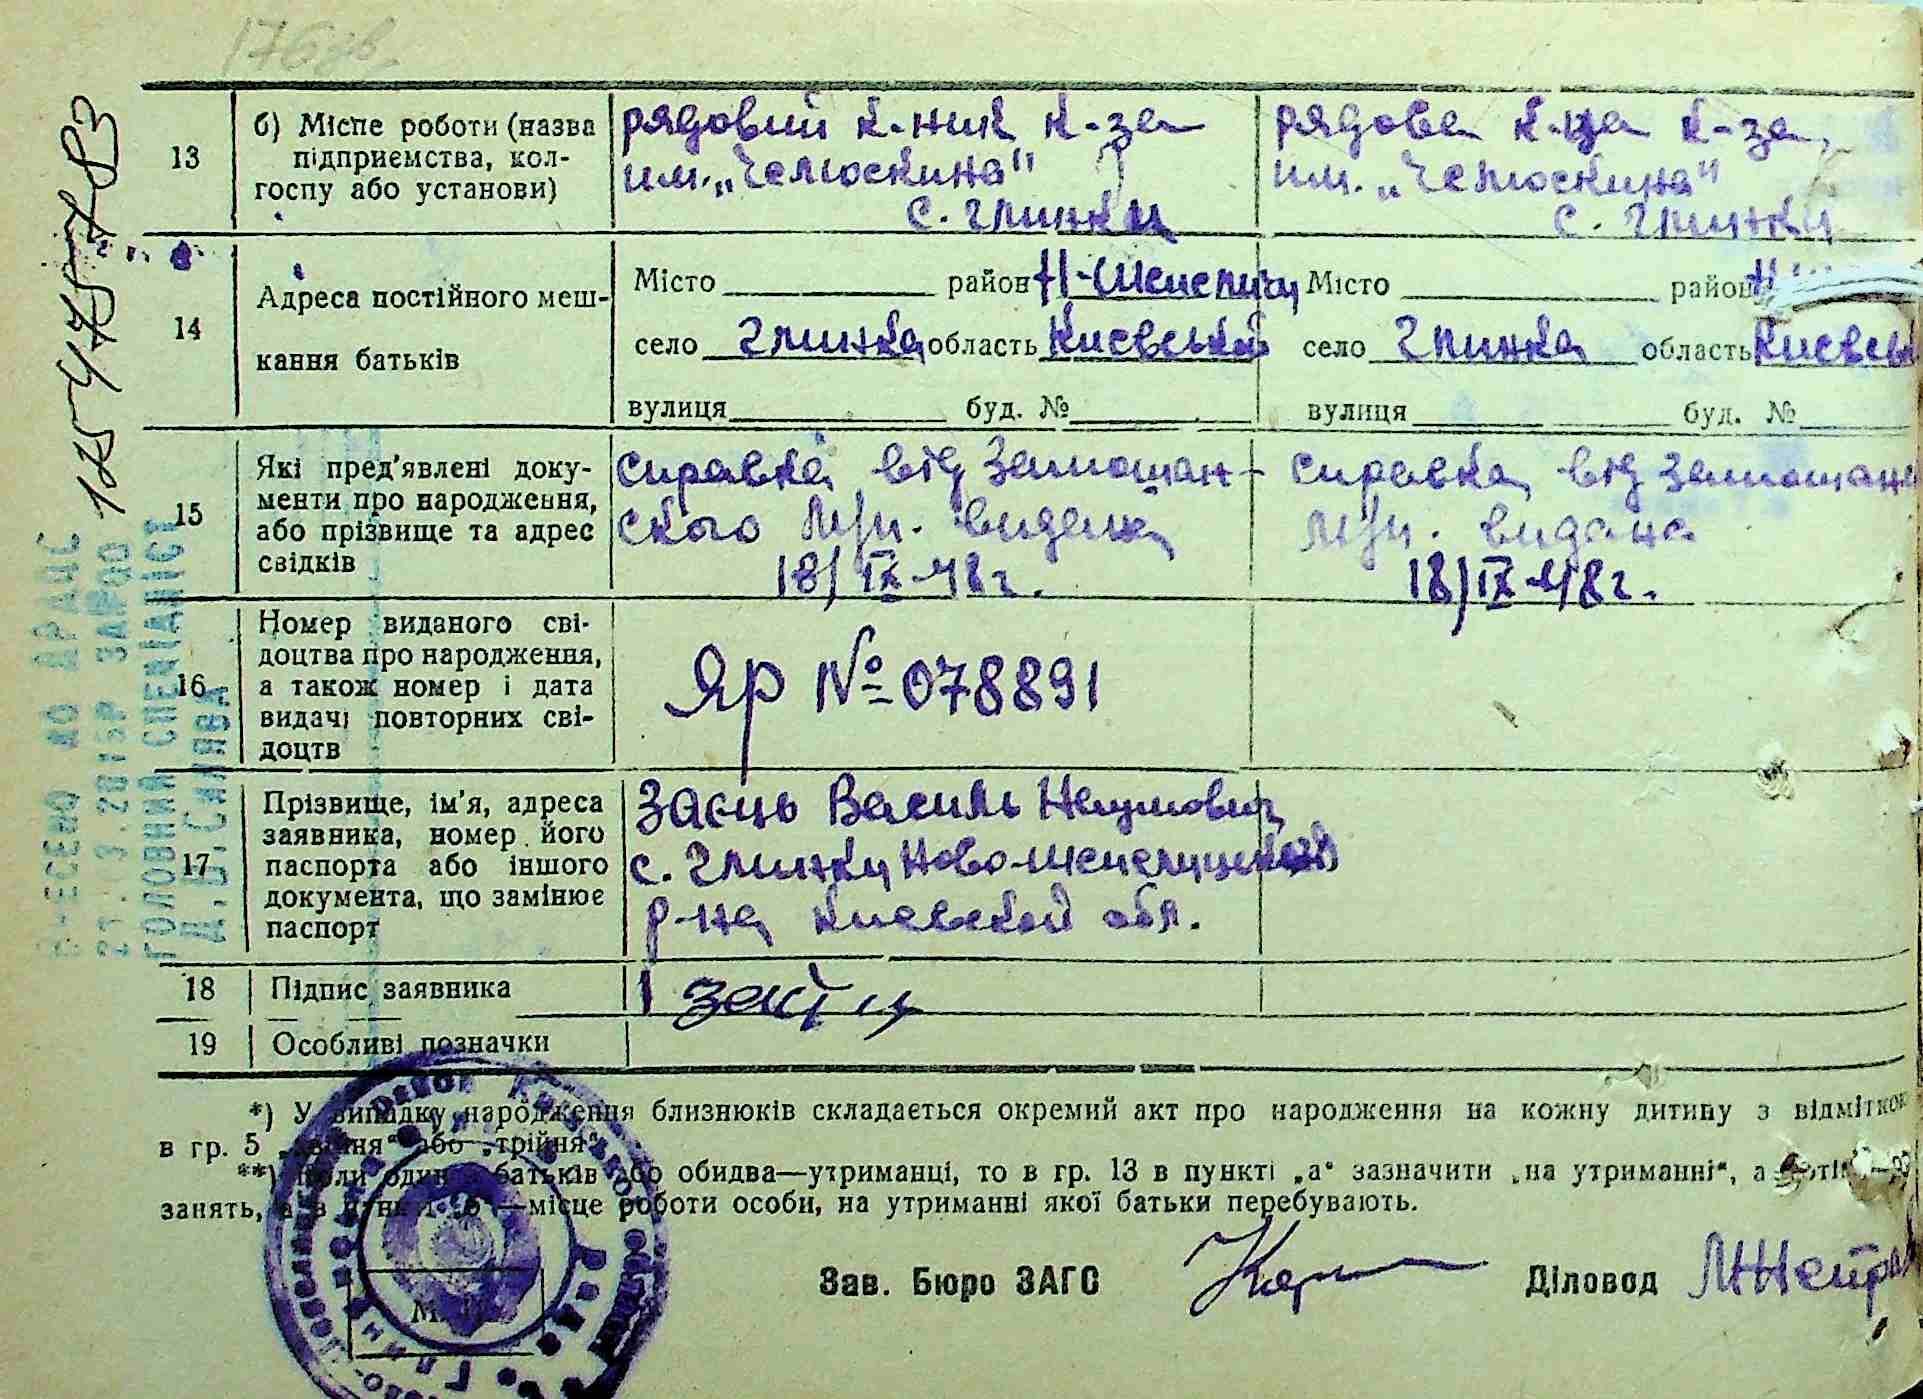 176 зв.
13
б) Місце роботи (назва
підприємства, кол-
госпу або установи)
рядовий к-ник к-за
им. „Челюскина"
с. Глинки
рядова к-ца к-за
им. „Челюскина"
с. Глинки
14
Адреса постійного меш-
кання батьків
Місто район Н-Шепеличи
село Глинка область Києвська
вулиця буд. №
Місто район Н
село Глинка область Києвськ
вулиця буд. №
15
Які пред'явлені доку-
менти про народження,
або прізвище та адрес
свідків
справка від Замошан-
ского с/ради видана
18/IX-48 г.
справка від Замошан
видана
18/IX-48 г.
16
Номер виданого сві-
доцтва про народження,
а також номер і дата
видачі повторних сві-
доцтв
Яр № 078891
17
Прізвище, ім'я, адреса
заявника, номер його
паспорта або іншого
документа, що замінює
паспорт
Заєць Василь Наумович
с. Глинки Ново-Шепелицкого
р-на Киевской обл.
18
Підпис заявника
19
Особливі позначки
*) У випадку народження близнюків складається окремий акт про народження на кожну дитину з відміткою
в гр. 5 „двійня" або „трійня".
**) Коли один з батьків або обидва—утриманці, то в гр. 13 в пункті „а" зазначити „на утриманні", а
занять, а в пункті „б"—місце роботи особи, на утриманні якої батьки перебувають.
Зав. Бюро ЗАГС
Діловод
М. П.
ВНЕСЕНО ДО ДРАЦС
ГОЛОВНИЙ СПЕЦІАЛІСТ